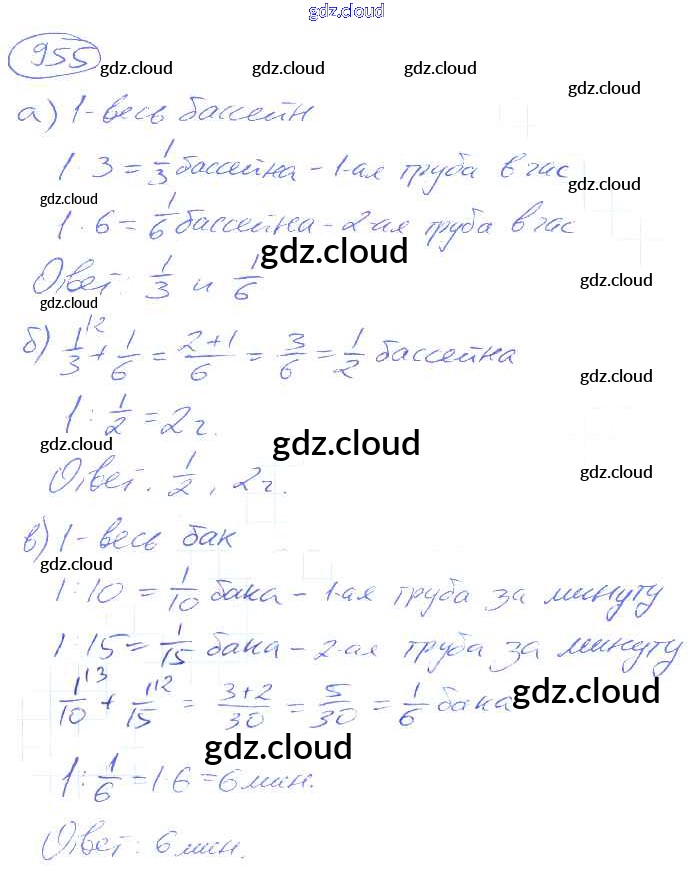 gdz.cloud
955
gdz.cloud gdz.cloud gdz.cloud
gdz.cloud
а) 1-весь бассейн
1·3=1/3 бассейна-1-ая труба в час
gdz.cloud
gdz.cloud
1·6=1/6 бассейна-2-ая труба в час
gdz.cloud
Ответ: 1/3 и 1/6
gdz.cloud
gdz.cloud
б) 1/3^{\2}+1/6=(2+1)/6=3/6=1/2 бассейна
gdz.cloud
1:1/2=2ч.
gdz.cloud
gdz.cloud
Ответ. 1/2, 2ч.
gdz.cloud
в) 1-весь бак
gdz.cloud
1:10=1/10 бака-1-ая труба за минуту
1:15=1/15 бака-2-ая труба за минуту
gdz.cloud
1/10^{\3}+1/15^{\2}=(3+2)/30=5/30=1/6 бака
gdz.cloud
gdz.cloud
1:1/6=1·6=6мин.
Ответ: 6мин.